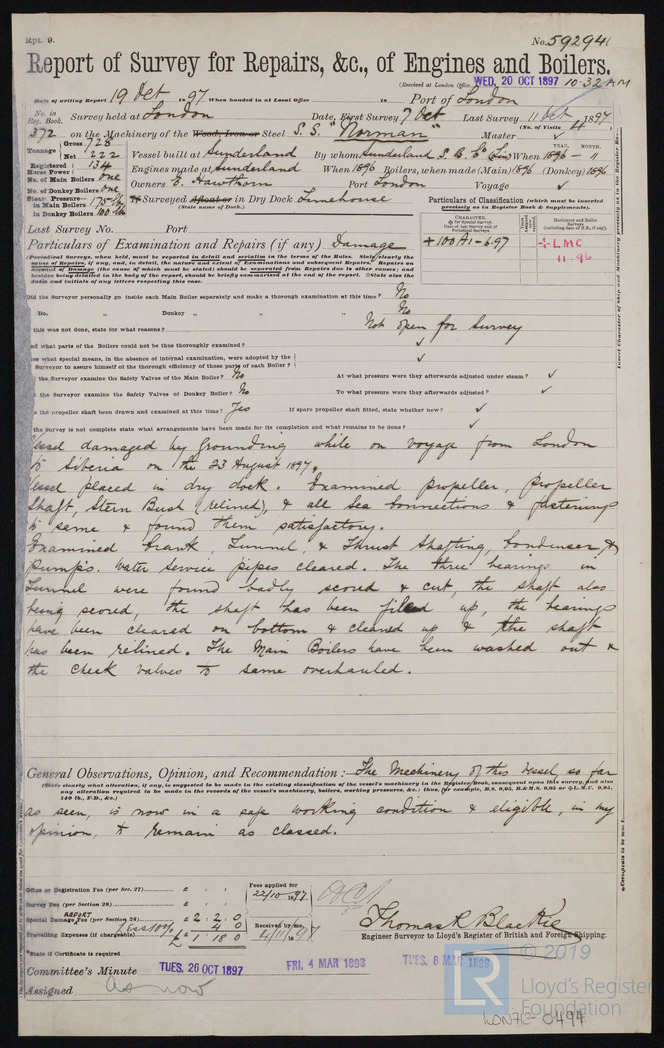 Rpt. 9.
No. 59294
Report of Survey for Repairs, &c., of Engines and Boilers.
(Received at London Office WED. 20 OCT 1897 10-32 AM
Date of writing Report 19 Oct 1897 When handed in at Local Office 18 Port of London
No. in Reg. Book. 372
Survey held at London Date, First Survey 7 Oct Last Survey 11 Oct 1897
(No. of Visits 4)
on the Machinery of the Wood, Iron or Steel S.S. "Norman" Master ✓
Tonnage Gross 728 Net 222
Vessel built at Sunderland By whom Sunderland S. B. Co Lim When 1896 - 11
YEAR. MONTH.
Registered Horse Power 134
Engines made at Sunderland When 1896 Boilers, when made (Main) 1896 (Donkey) 1896
No. of Main Boilers one
No. of Donkey Boilers one
Owners E. Hawthorn Port London Voyage ✓
Steam Pressure— in Main Boilers 175 lb
in Donkey Boilers 100 lb
If Surveyed Afloat or in Dry Dock Limehouse
(State name of Dock.)
Particulars of Classification (which must be inserted precisely as in Register Book & Supplements).
Last Survey No. Port
CHARACTER.
+100A1-6.97
+LMC
11.96
Particulars of Examination and Repairs (if any) Damage
Did the Surveyor personally go inside each Main Boiler separately and make a thorough examination at this time? No
Do. " Donkey " " " No
this was not done, state for what reasons? Not open for Survey
nd what parts of the Boilers could not be thus thoroughly examined? ✓
ow what special means, in the absence of internal examination, were adopted by the
Surveyor to assure himself of the thorough efficiency of those parts of each Boiler? ✓
the Surveyor examine the Safety Valves of the Main Boiler? No At what pressure were they afterwards adjusted under steam? ✓
the Surveyor examine the Safety Valves of Donkey Boiler? No To what pressure were they afterwards adjusted? ✓
s the propeller shaft been drawn and examined at this time? Yes If spare propeller shaft fitted, state whether new? ✓
the Survey is not complete state what arrangements have been made for its completion and what remains to be done? ✓
Vessel damaged by grounding while on voyage from London
to Siberia on the 23 August 1897.
Vessel placed in dry dock. Examined propeller, propeller
Shaft, Stern Bush (relined), & all Sea Connections & fastenings
to same & found them satisfactory.
Examined Crank, Tunnel, & Thrust Shafting, Condenser, &
pumps. Water Service pipes cleared. The three bearings in
Tunnel were found badly scored & cut, the shaft also
being scored, the shaft has been filed up, the bearings
have been cleared on bottom & cleaned up & the shaft
has been relined. The Main Boilers have been washed out &
the check valves to same overhauled.
General Observations, Opinion, and Recommendation:— The Machinery of this vessel, so far
(State clearly what alteration, if any, is suggested to be made in the existing classification of the vessel's machinery in the Register Book, consequent upon this survey, and also
any alteration required to be made in the records of the vessel's machinery, boilers, working pressures, &c.: thus, for example, B.S. 9,95, B.&M.S. 9,95 or +L.M.C. 9,95,
140 lb., F.D., &c.)
as seen, is now in a safe working condition & eligible, in my
opinion, to remain as classed.
Office or Registration Fee (per Sec. 27) £ : : Fees applied for 22/10 1897
Survey Fee (per Section 28) £ : :
Special Damage REPORT Fee (per Section 28) £ 2 : 2 : 0
Travelling Expenses (if chargeable) Less 10% 4 0
£ 1 : 18 : 0
Received by me, 4/11/1897
Thomas R Blackie
Engineer Surveyor to Lloyd's Register of British and Foreign Shipping.
State if Certificate is required
Committee's Minute TUES. 26 OCT 1897 FRI. 4 MAR 1898 TUES. 8 MAR 1898
Assigned As now
© 2019
LR
Lloyd's Register
Foundation
LON72-0494